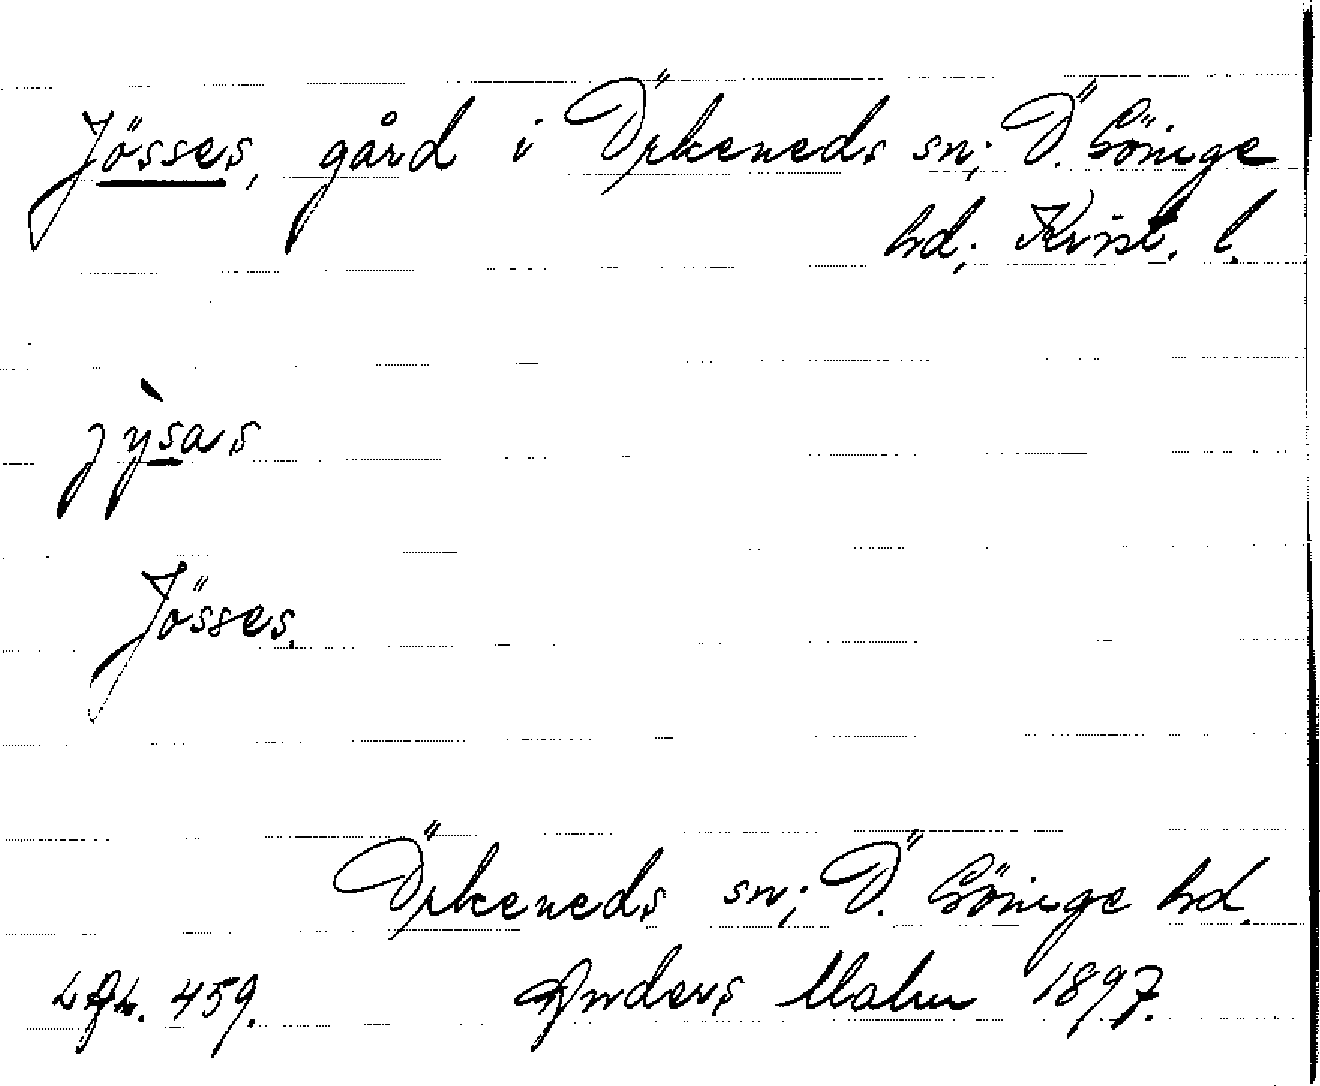 Jösses, gård i Örkeneds sn; Ö. Göinge
hd; Krist. l.
jỳsas
Jösses.
Örkeneds sn; Ö. Göinge hd.
459. Anders Malm 1897.